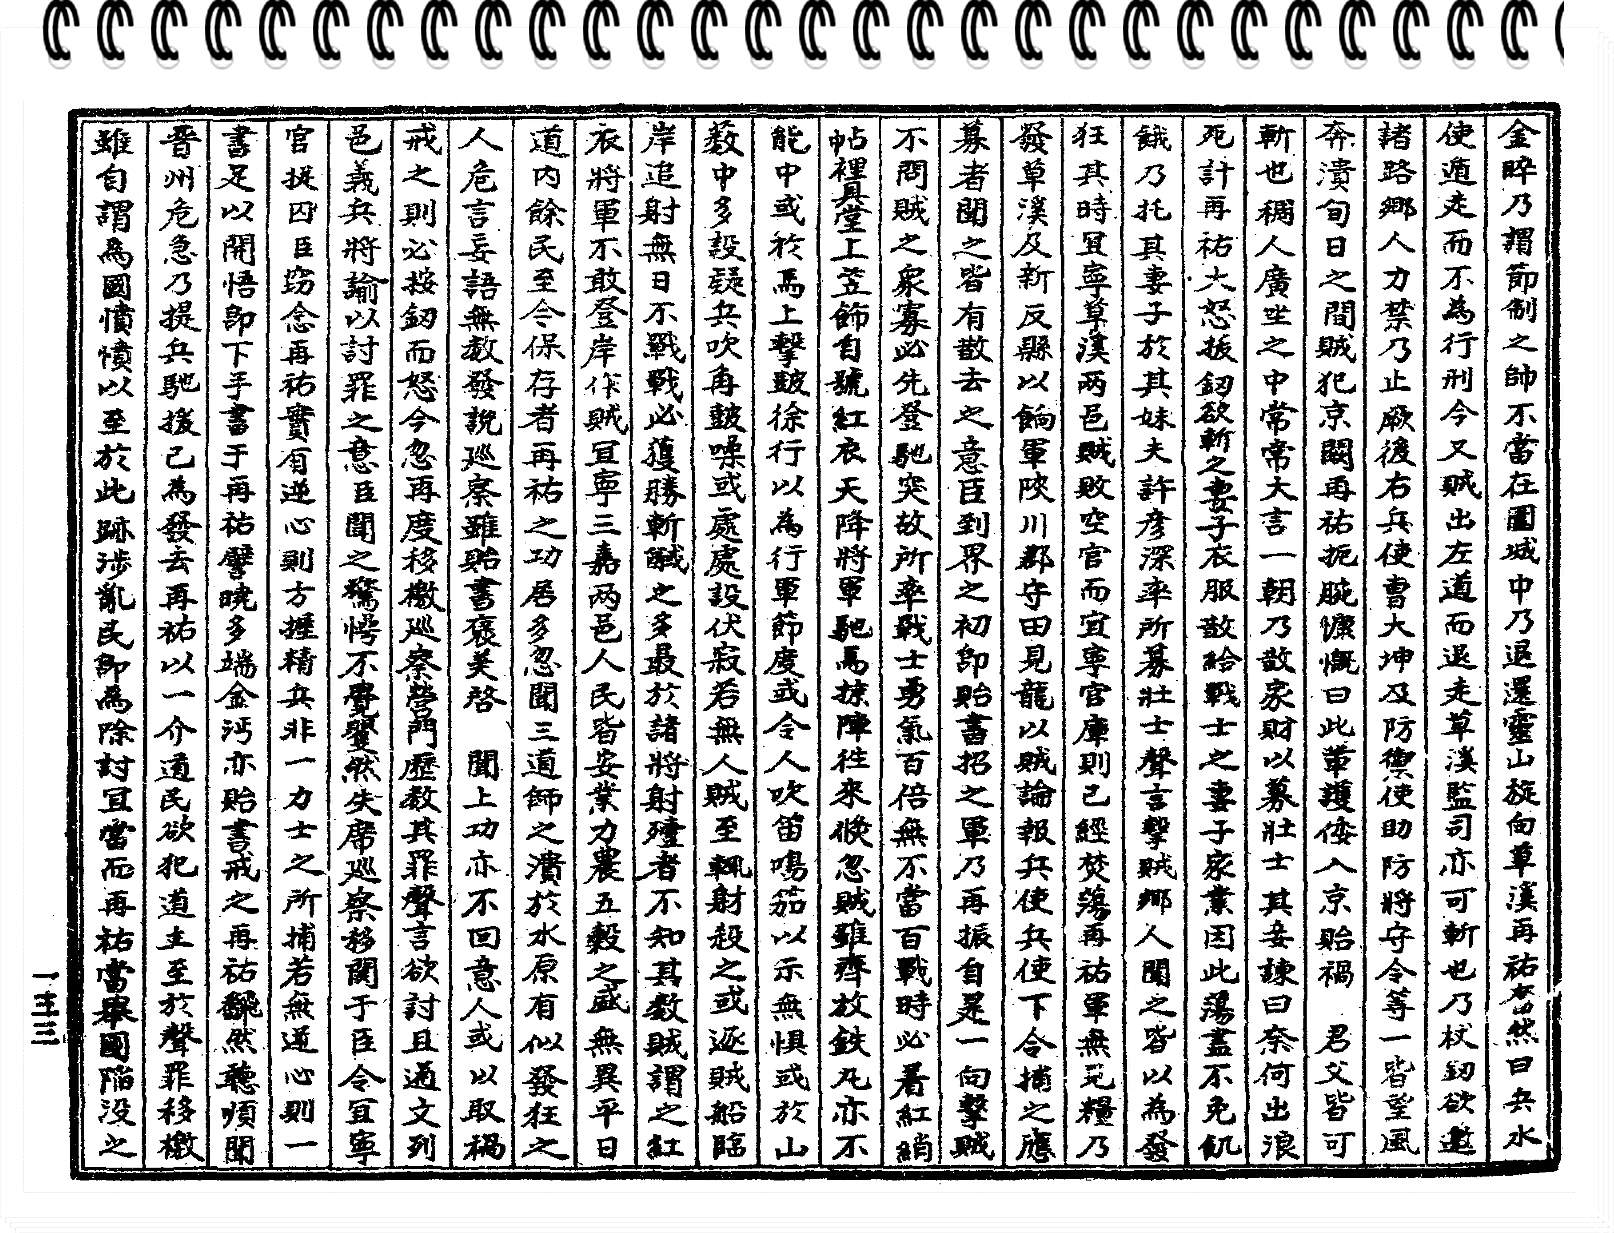 金晬乃謂節制之帥不當在圍城中乃退還靈山旋向草溪再祐奮然曰兵水
使遁走而不為行刑今又賊出左道而退走草溪監司亦可斬也乃杖釰欲邀
諸路鄉人力禁乃止厥後右兵使曺大坤及防禦使助防將守令等一皆望風
奔潰旬日之間賊犯京闕再祐扼腕慷慨曰此輩護倭入京貽禍 君父皆可
斬也稠人廣坐之中常常大言一朝乃散家財以募壯士其妾諫曰奈何出浪
死計再祐大怒拔釰欲斬之妻子衣服散給戰士之妻子家業因此蕩盡不免飢
餓乃托其妻子於其妹夫許彦深率所募壯士聲言擊賊鄉人聞之皆以為發
狂其時宜寧草溪兩邑賊敗空官而宜寧官庫則已經焚蕩再祐軍無見糧乃
發草溪及新反縣以餉軍陜川郡守田見龍以賊論報兵使兵使下令捕之應
募者聞之皆有散去之意臣到界之初卽貽書招之軍乃再振自是一向擊賊
不問賊之衆寡必先登馳突故所率戰士勇氣百倍無不當百戰時必着紅綃
帖裡具堂上笠飾自號紅衣天降將軍馳馬掠陣徃來倐忽賊雖齊放鉄丸亦不
能中或於馬上擊鼓徐行以為行軍節度或令人吹笛鳴笳以示無惧或於山
藪中多設疑兵吹角鼓噪或處處設伏寂若無人賊至輒射殺之或逐賊船臨
岸追射無日不戰戰必獲勝斬馘之多最於諸將射殪者不知其數賊謂之紅
衣將軍不敢登岸作賊宜寧三嘉兩邑人民皆安業力農五穀之盛無異平日
道內餘民至今保存者再祐之功居多忽聞三道師之潰於水原有似發狂之
人危言妄語無數發說巡察雖貽書褒美啓 聞上功亦不回意人或以取禍
戒之則必按釰而怒今忽再度移檄巡察營門歷數其罪聲言欲討且通文列
邑義兵將諭以討罪之意臣聞之驚愕不覺矍然失席巡察移關于臣令宜寧
官捉囚臣竊念再祐實有逆心則方握精兵非一力士之所捕若無逆心則一
書足以開悟卽下手書于再祐譬曉多端金沔亦貽書戒之再祐飜然聽順聞
晋州危急乃提兵馳援已為發去再祐以一介道民欲犯道主至於聲罪移檄
雖自謂為國憤憤以至於此跡涉亂民卽為除討宜當而再祐當擧國陷沒之
一三三